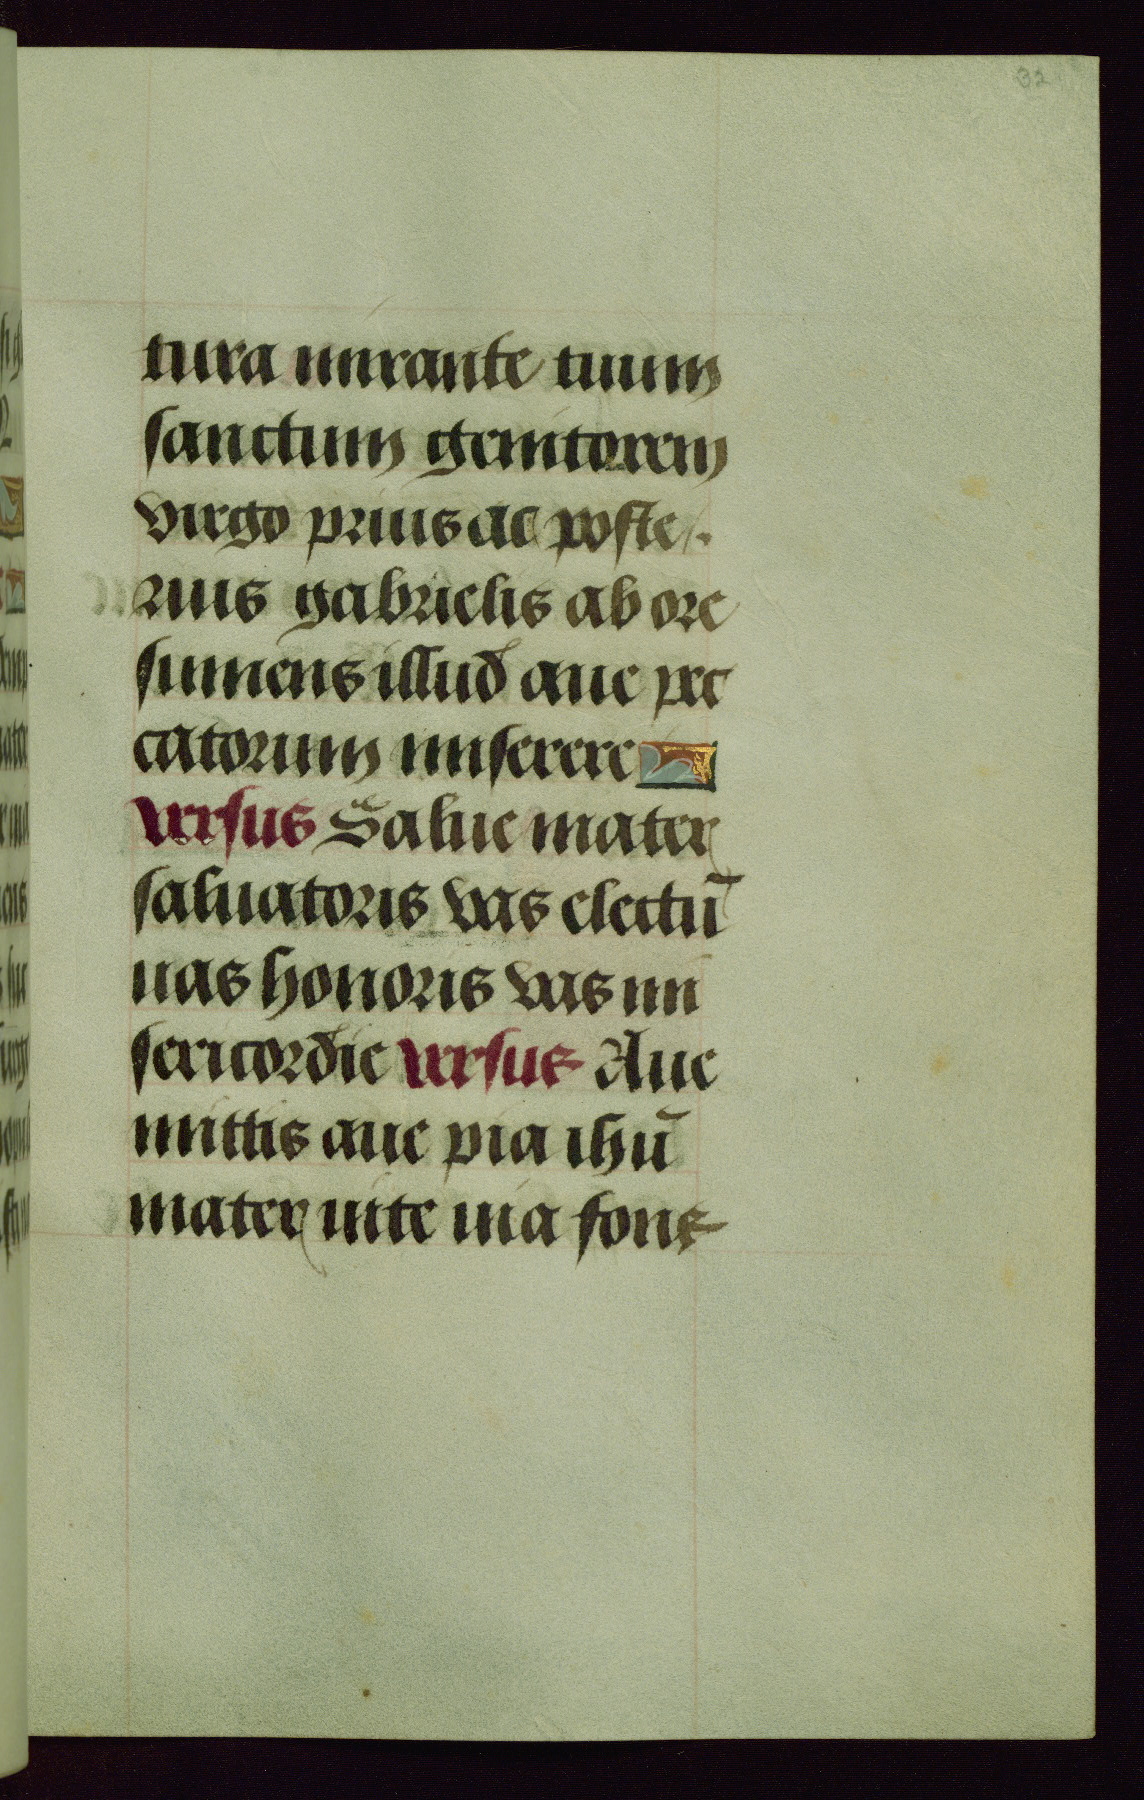 32
tura mirante tuum
sanctum genitorem
virgo prius ac poste
rius gabrielis ab ore
sumens illud aue pec
catorum miserere
versus Salue mater
saluatoris vas electū
uas honoris vas mi
sericordie versus Aue
mittis aue pia ihū
mater uite uia fons